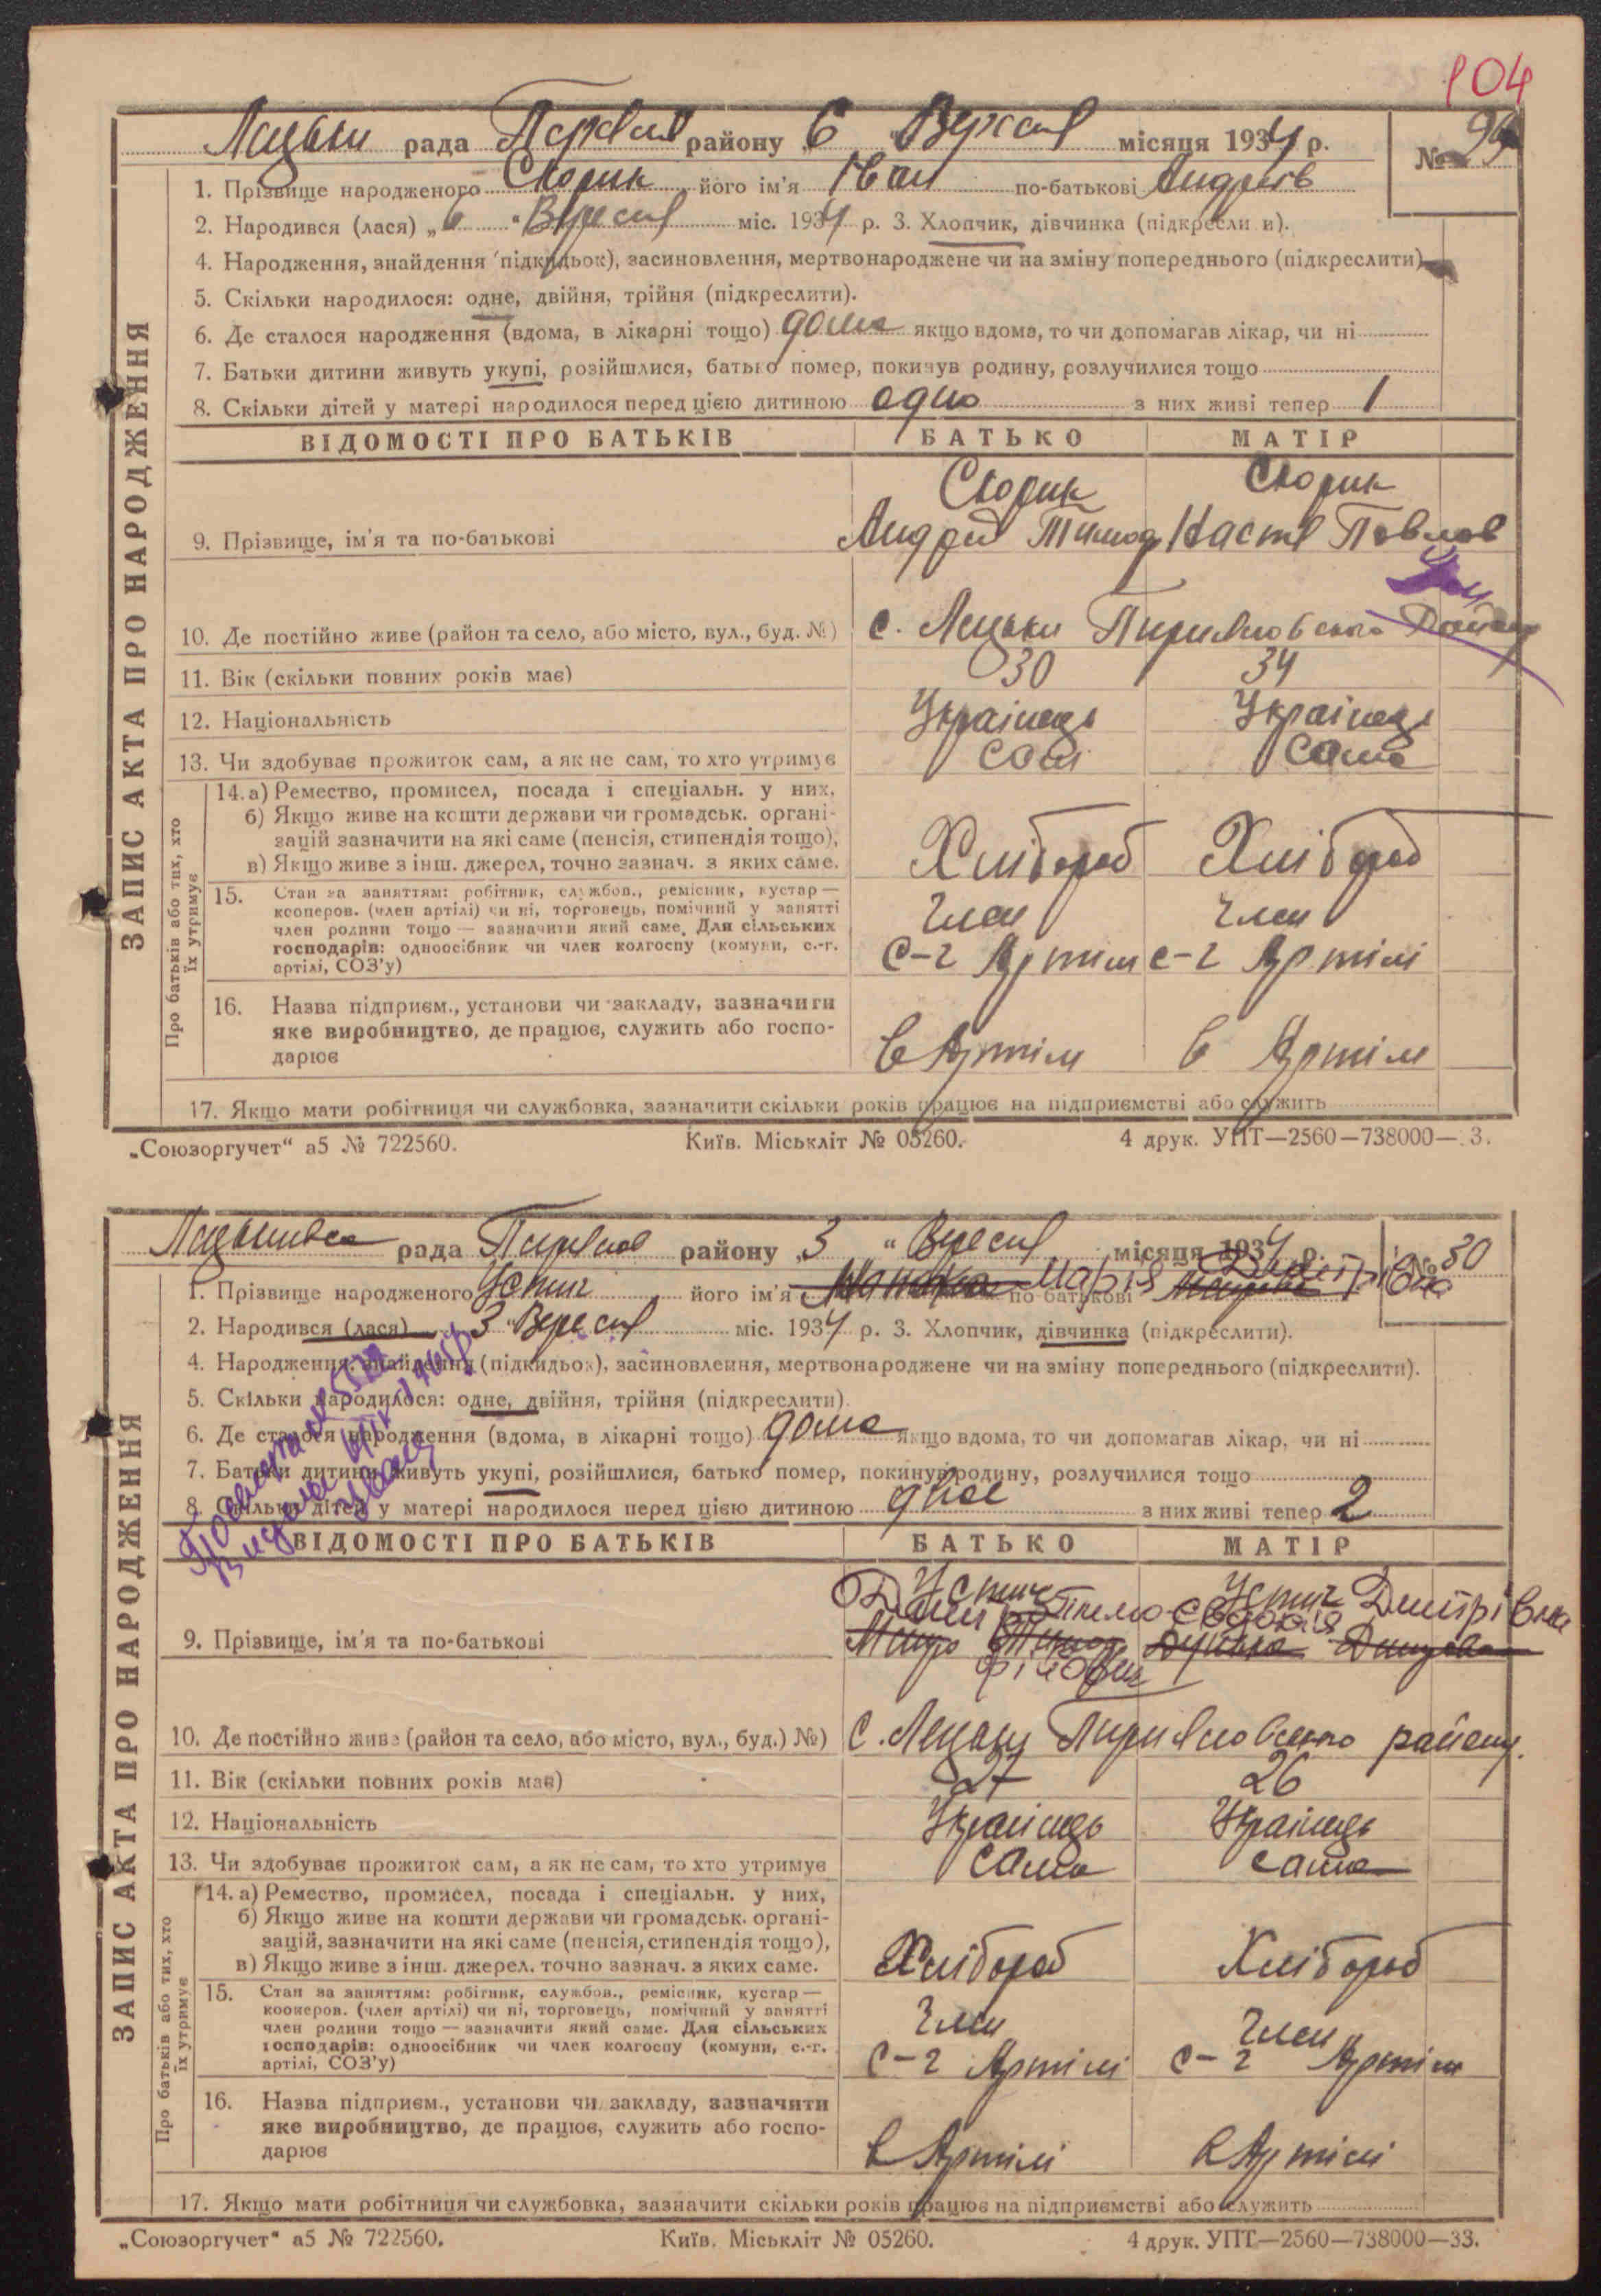 104
Лецьки рада Переясл району 6 Вересня місяця 1934 р.
№
1. Прізвище народженого Скорик його ім'я Іван по-батькові Андріїв
2. Народився (лася) „6" Вересня міс. 1934 р. 3. Хлопчик, дівчинка (підкреслити).
4. Народження, знайдення (підкидьок), засиновлення, мертвонароджене чи на зміну попереднього (підкреслити)
5. Скільки народилося: одне, двійня, трійня (підкреслити).
6. Де сталося народження (вдома, в лікарні тощо) дома якщо вдома, то чи допомагав лікар, чи ні
7. Батьки дитини живуть укупі, розійшлися, батько помер, покинув родину, розлучилися тощо
8. Скільки дітей у матері народилося перед цією дитиною одно з них живі тепер 1
ВІДОМОСТІ ПРО БАТЬКІВ БАТЬКО МАТІР
Скорик Скорик
9. Прізвище, ім'я та по-батькові Андрій Тимоф Настя Павлов
10. Де постійно живе (район та село, або місто, вул., буд. №) с. Лецьки Переяславського Району
11. Вік (скільки повних років має) 30 34
12. Національність Українець Українець
13. Чи здобуває прожиток сам, а як не сам, то хто утримує сам сама
14. а) Ремество, промисел, посада і спеціальн. у них,
б) Якщо живе на кошти держави чи громадськ. органі-
зацій зазначити на які саме (пенсія, стипендія тощо),
в) Якщо живе з інш. джерел, точно зазнач. з яких саме.
Хлібороб Хлібороб
15. Стан за заняттям: робітник, службов., ремісник, кустар —
кооперов. (член артілі) чи ні, торговець, помічний у занятті
член родини тощо — зазначити який саме. Для сільських
господарів: одноосібник чи член колгоспу (комуни, с.-г.
артілі, СОЗ'у)
Член Член
с-г Артілі с-г Артілі
16. Назва підприєм., установи чи закладу, зазначити
яке виробництво, де працює, служить або госпо-
дарює
в Артілі в Артілі
17. Якщо мати робітниця чи службовка, зазначити скільки років працює на підприємстві або служить
Про батьків або тих, хто їх утримує
ЗАПИС АКТА ПРО НАРОДЖЕННЯ
„Союзоргучет" а5 № 722560. Київ. Міськліт № 05260. 4 друк. УПТ—2560—738000—33.
рада району 3 " Вересня місяця 1934 р. № 30
1. Прізвище народженого Устич його ім'я Марія по-батькові Дмитрівна
2. Народився (лася) 3 "Вересня міс. 1934 р. 3. Хлопчик, дівчинка (підкреслити).
4. Народження, знайдення (підкидьок), засиновлення, мертвонароджене чи на зміну попереднього (підкреслити).
5. Скільки народилося: одне, двійня, трійня (підкреслити).
6. Де сталося народження (вдома, в лікарні тощо) дома якщо вдома, то чи допомагав лікар, чи ні
7. Батьки дитини живуть укупі, розійшлися, батько помер, покинув родину, розлучилися тощо
8. Скільки дітей у матері народилося перед цією дитиною двоє з них живі тепер 2
ВІДОМОСТІ ПРО БАТЬКІВ БАТЬКО МАТІР
Устич Устич Дмитрівна
Євдокія
9. Прізвище, ім'я та по-батькові
10. Де постійно живе (район та село, або місто, вул., буд.) №) с. Лецьки Переяславського району.
11. Вік (скільки повних років має) 27 26
12. Національність Українець Українець
13. Чи здобуває прожиток сам, а як не сам, то хто утримує сама сама
14. а) Ремество, промисел, посада і спеціальн. у них,
б) Якщо живе на кошти держави чи громадськ. органі-
зацій, зазначити на які саме (пенсія, стипендія тощо),
в) Якщо живе з інш. джерел. точно зазнач. з яких саме.
Хлібороб Хлібороб
15. Стан за заняттям: робітник, службов., ремісник, кустар —
кооперов. (член артілі) чи ні, торговець, помічний у занятті
член родини тощо — зазначити який саме. Для сільських
господарів: одноосібник чи член колгоспу (комуни, с.-г.
артілі, СОЗ'у)
Член Член
с-г Артілі с-г Артілі
16. Назва підприєм., установи чи закладу, зазначити
яке виробництво, де працює, служить або госпо-
дарює
в Артілі в Артілі
17. Якщо мати робітниця чи службовка, зазначити скільки років працює на підприємстві або служить
Про батьків або тих, хто їх утримує
ЗАПИС АКТА ПРО НАРОДЖЕННЯ
„Союзоргучет" а5 № 722560. Київ. Міськліт № 05260. 4 друк. УПТ—2560—738000—33.